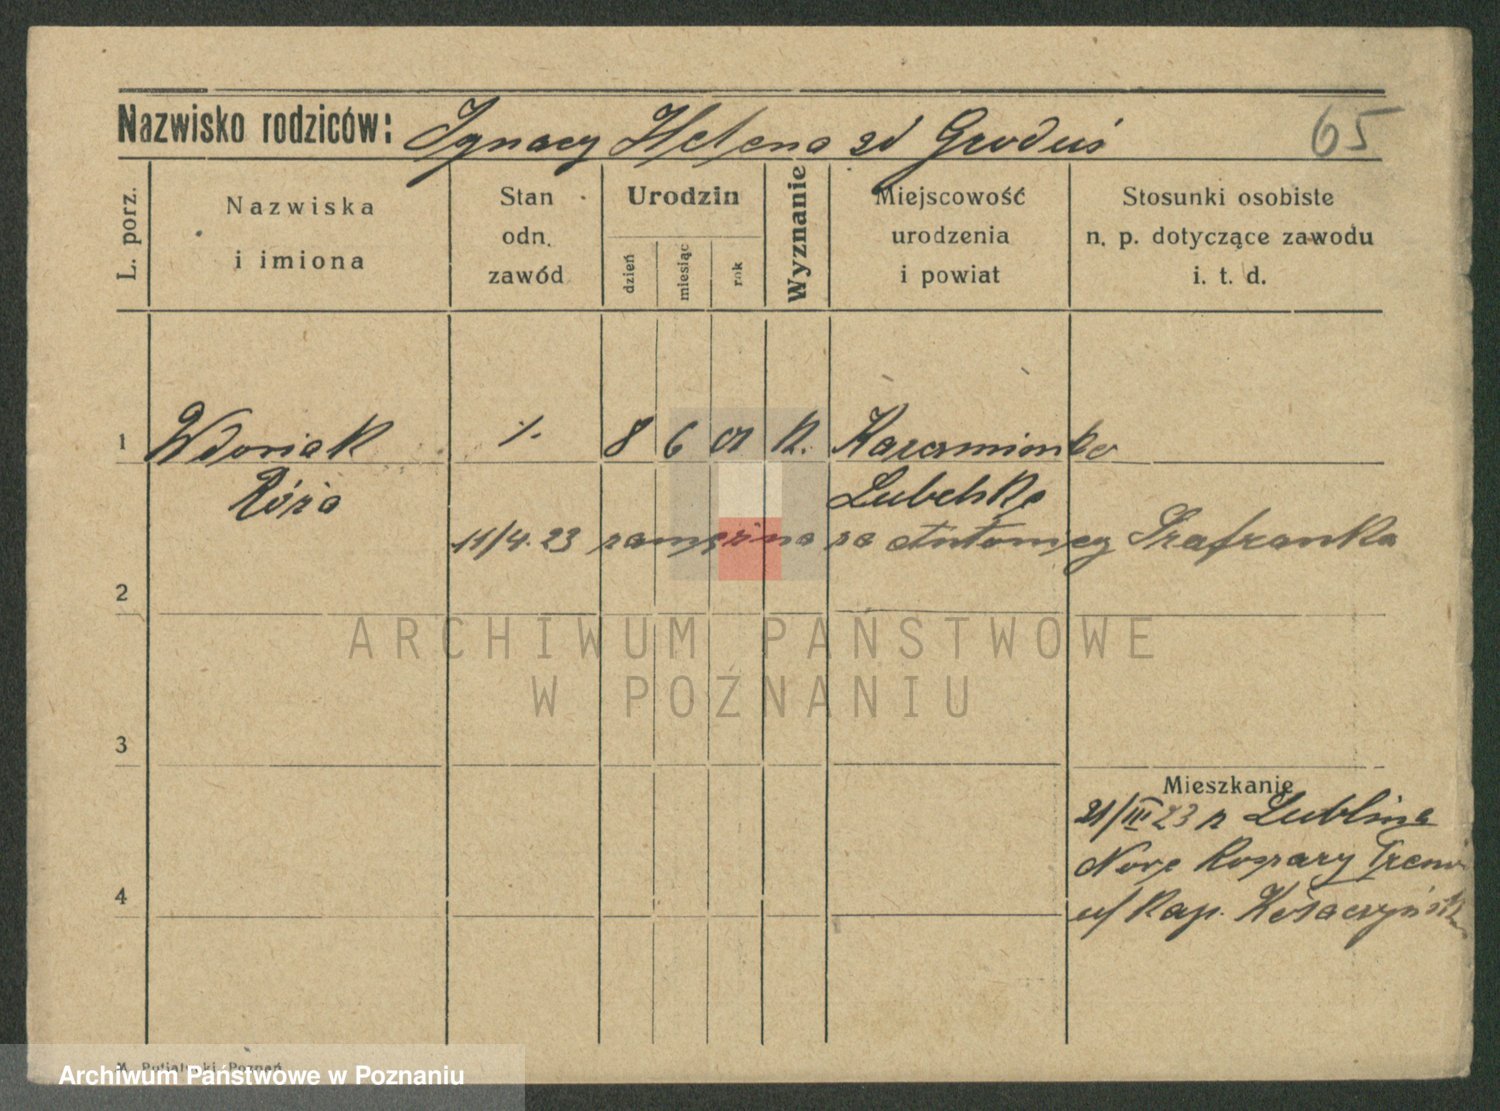 Nazwisko rodziców: Ignacy Helena zd Groduś
65
L. porz.
Nazwiska
i imiona
Stan
odn.
zawód
Urodzin
dzień
miesiąc
rok
Wyznanie
Miejscowość
urodzenia
i powiat
Stosunki osobiste
n. p. dotyczące zawodu
i. t. d.
1 Wdoriak ./. 8 6 01 K. Kazamionka
Róża Lubelska
11/4.23 zamężna za Antonim Szafranka
2
ARCHIWUM PAŃSTWOWE
W POZNANIU
3
Mieszkanie
21/III 23 z Lublina
Nowe
4
u/ Kap.
Poznań
Archiwum Państwowe w Poznaniu